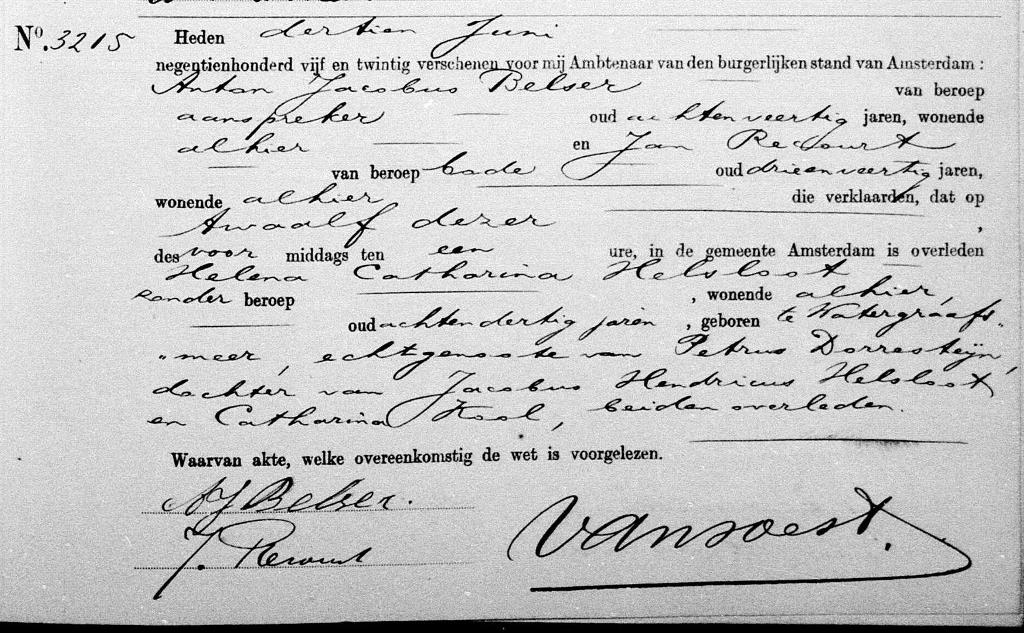 No. 3215 Heden dertien Juni
negentienhonderd vijf en twintig verschenen voor mij Ambtenaar van den burgerlijken stand van Amsterdam :
Anton Jacobus Belser van beroep
aanspreker oud achtenveertig jaren, wonende
alhier en Jan Recourt
van beroep bode oud drieenveertig jaren,
wonende alhier die verklaarden, dat op
twaalf dezer ,
des voor middags ten een ure, in de gemeente Amsterdam is overleden
Helena Catharina Helsloot
zonder beroep , wonende alhier,
oud achtendertig jaren , geboren te Watergraafs„
„meer, echtgenoote van Petrus Dorresteijn,
dochter van Jacobus Hendricus Helsloot
en Catharina Kool, beiden overleden.
Waarvan akte, welke overeenkomstig de wet is voorgelezen.
AJ Belser.
J. Recourt
van Soest.